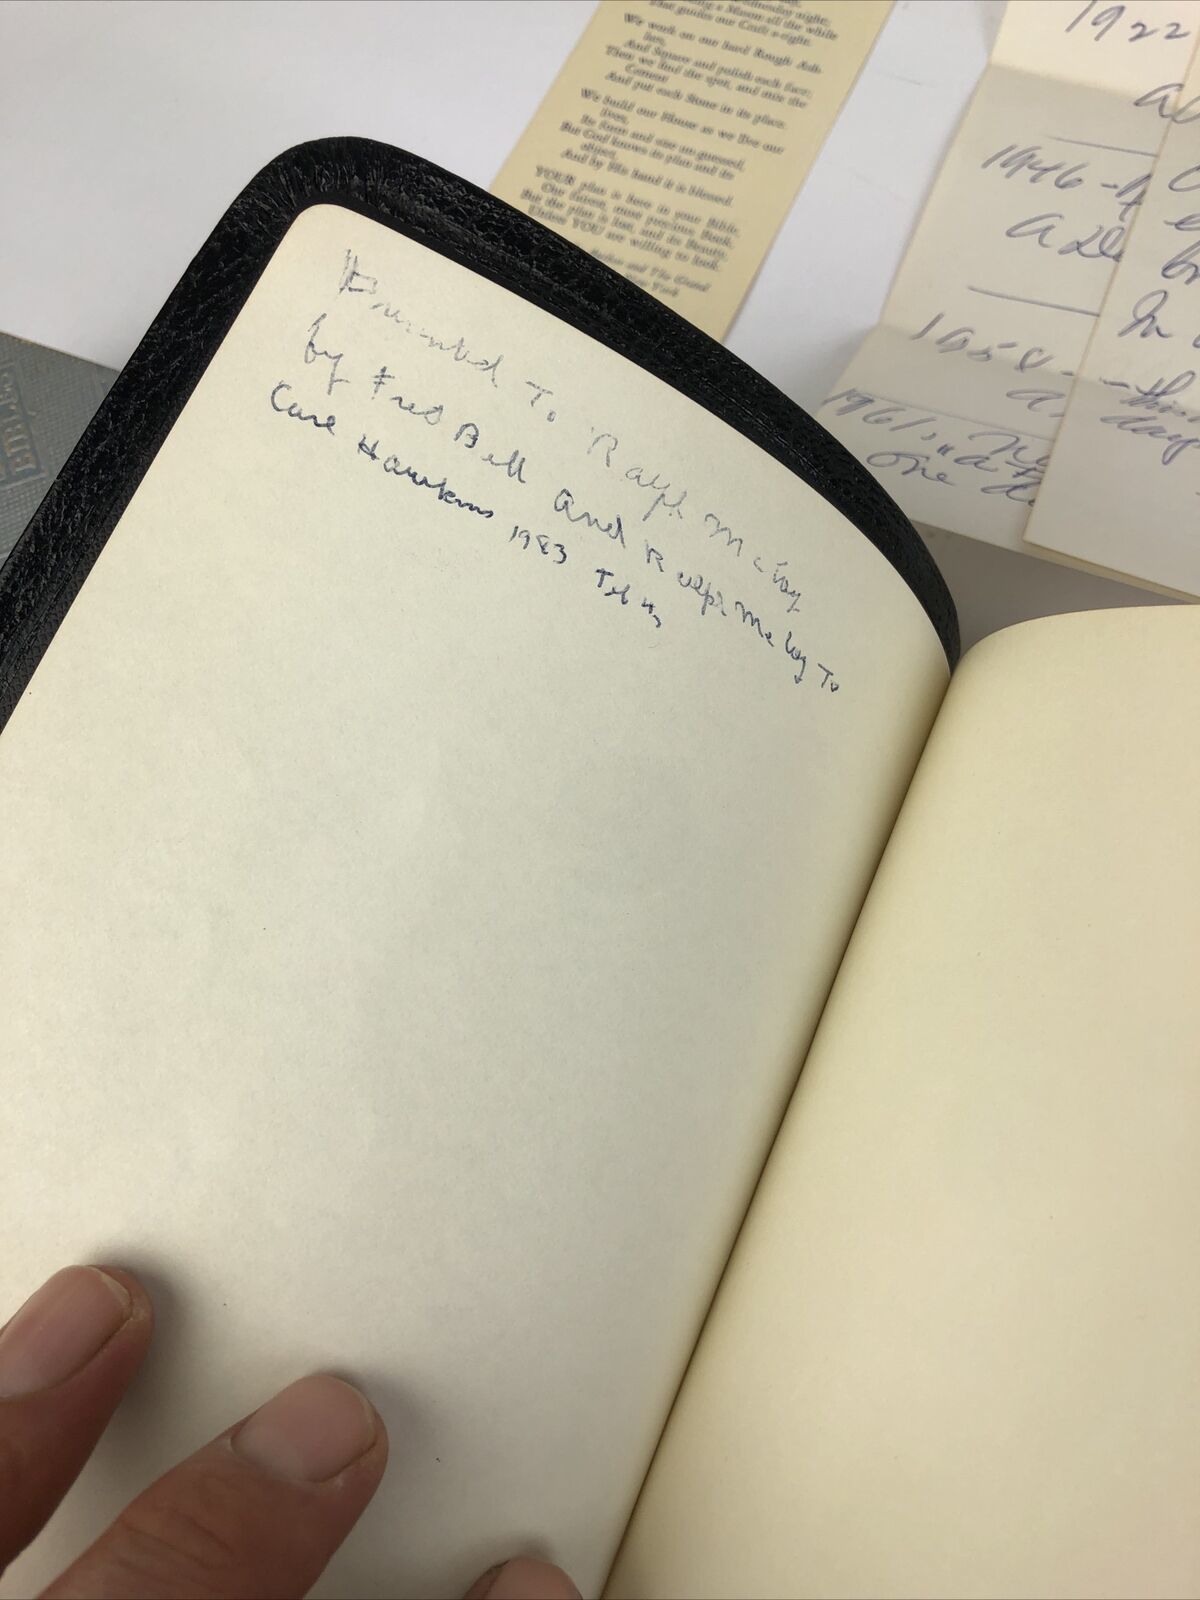 Wednesday night;
a Mason all the while
That guides our Craft a-right.
We work on our hard Rough Ash-
lars,
And Square and polish each face;
Then we find the spot, and mix the
Cement
And put each Stone in its place.
We build our House as we live our
lives,
Its form and size un-guessed,
But God knows its plan and its
object,
And by His hand it is blessed.
YOUR plan is here in your Bible,
Our fairest, most precious Book,
But the plan is lost, and its Beauty,
Unless YOU are willing to look.
and The Grand
New York
Presented To Ralph McCoy
by Fred Bell And Ralph McCoy To
Carl Hawkins 1983 Feb
1922
1946 -
1958 - - this
day
1961,
one
In
BIBLE